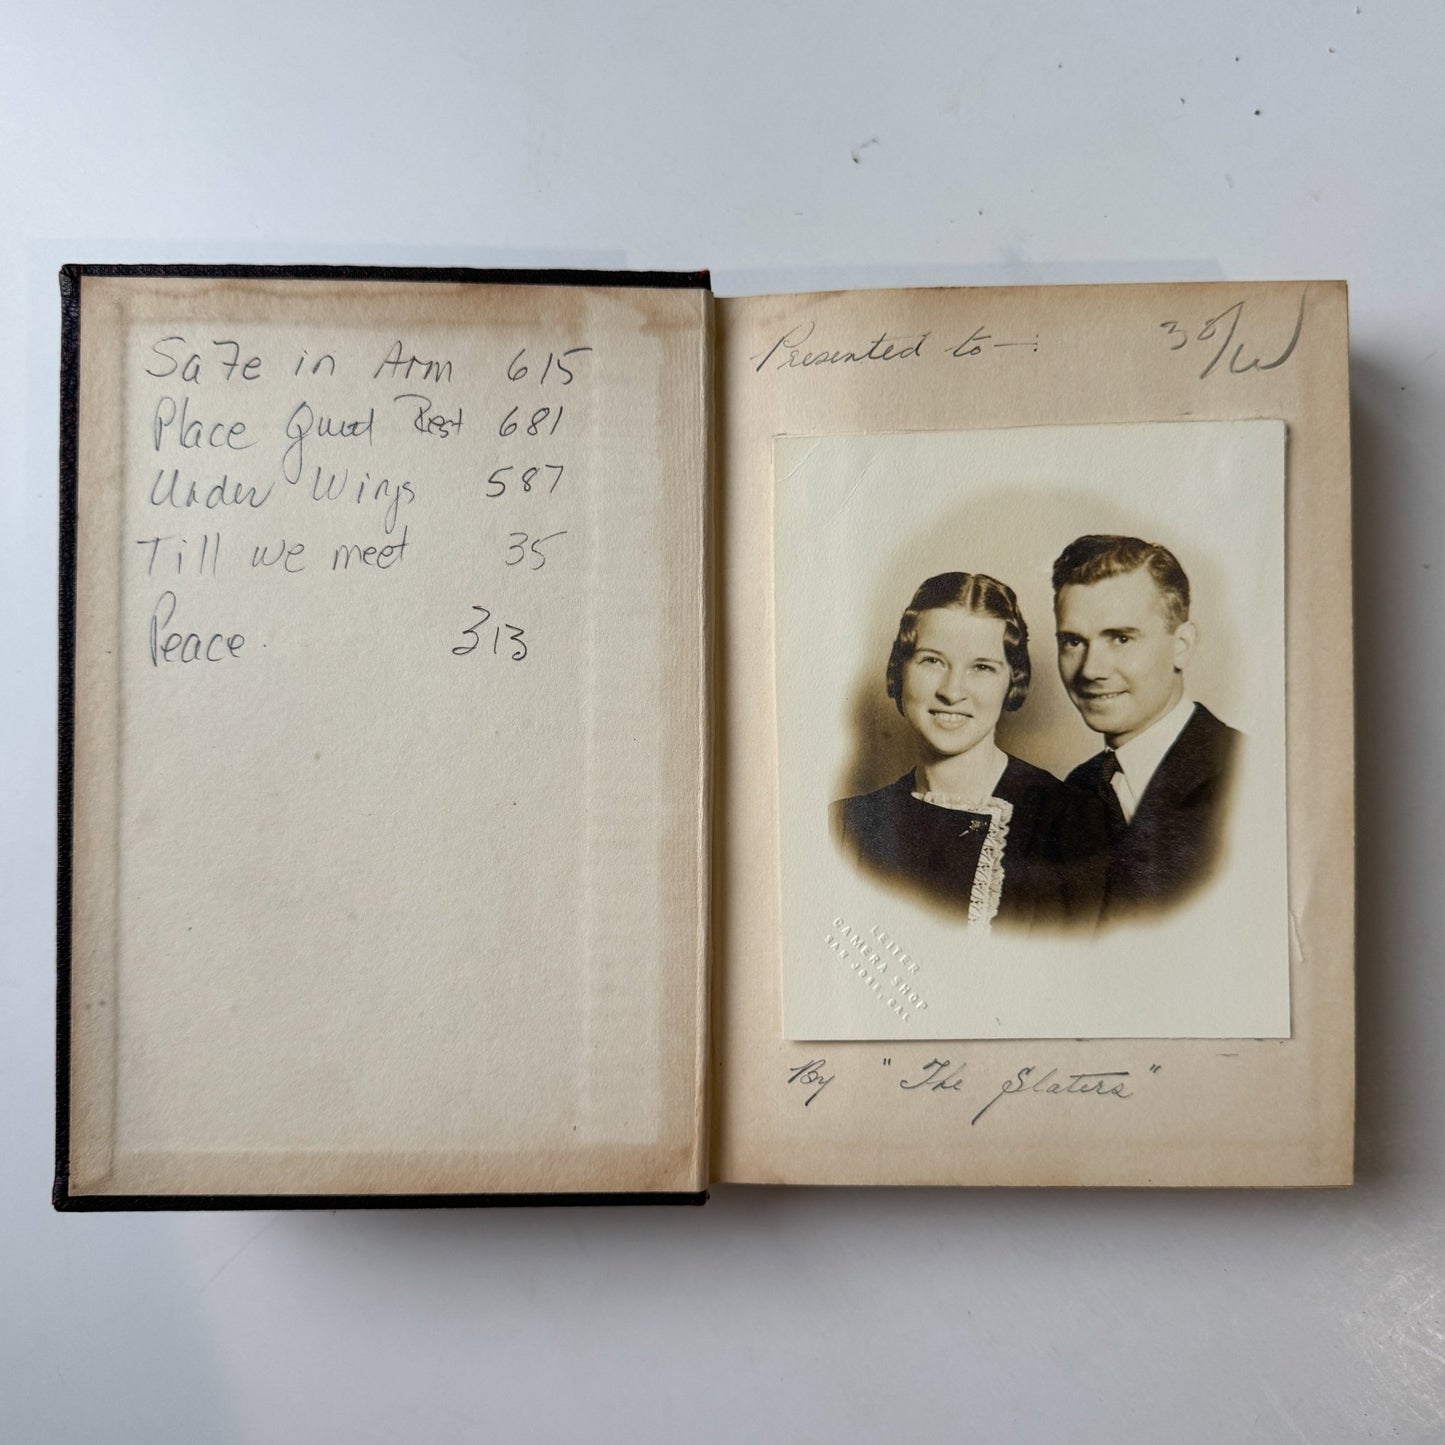 Safe in Arm 615
Place Quiet Rest 681
Under Wings 587
Till we meet 35
Peace. 313
Presented to—:
LEITER
CAMERA SHOP
SAN JOSE, CAL
By "The Slaters"